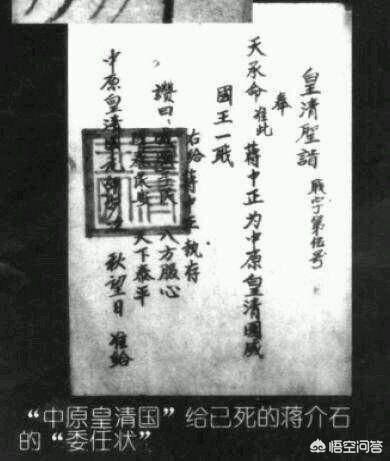 皇清聖 職字第伍号
奉
天承命准此 蔣中正为中原皇清國威
國王一職
右给蔣中正執存
讚曰 八方服心
天下泰平
中原皇清 元 秋望日 准給
“中原皇清国”给已死的蒋介石
的“委任状”
悟空问答